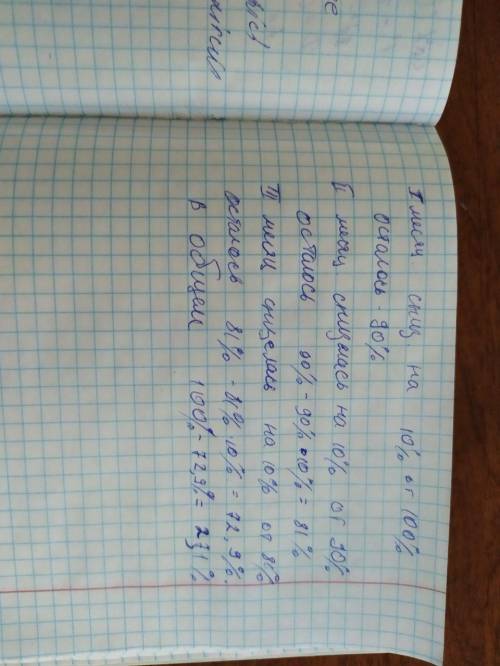 I месяц сниз на 10% от 100%
осталось - 90%
II месяц снизилась на 10% от 90%
осталось 90% - 90% • 10% = 81%
III месяц снизелась на 10% от 81%
осталось 81% - 81% • 10% = 72,9%
В общем 100% - 72,9% = 27,1%